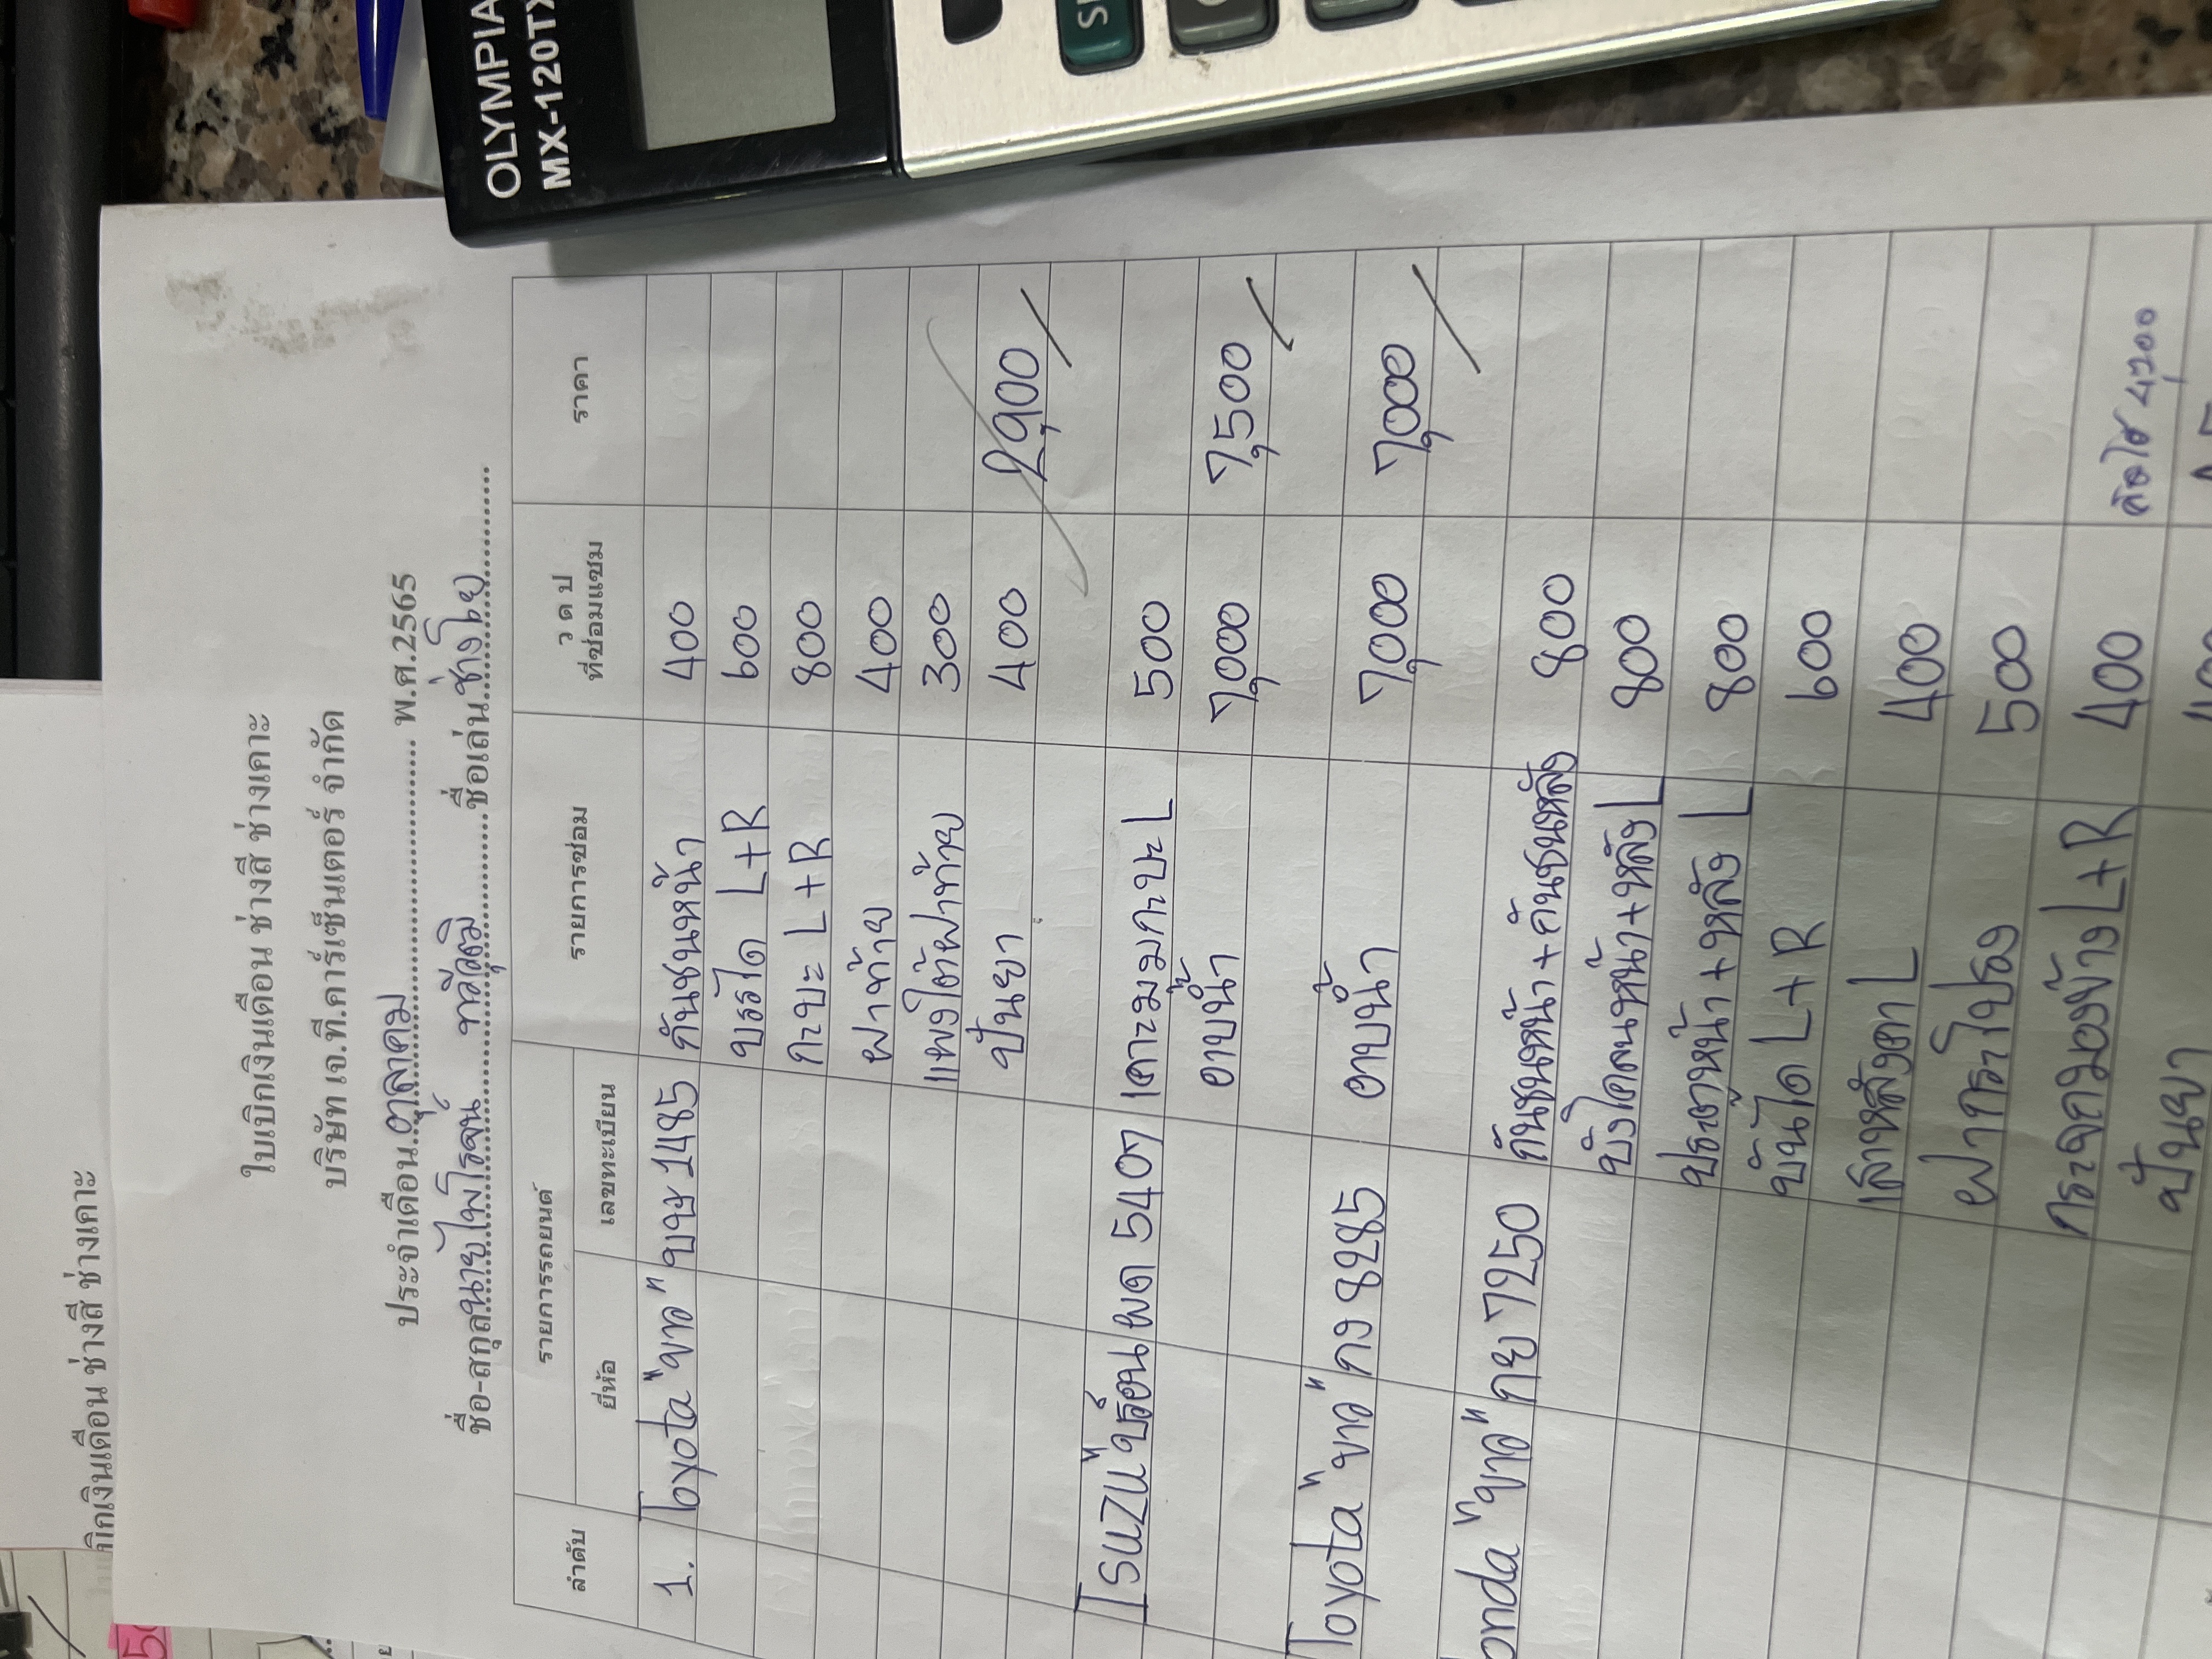 OLYMPIA
MX-120TX
ใบเบิกเงินเดือน ช่างสี ช่างเคาะ
บริษัท เจ.ที.คาร์เซ็นเตอร์ จำกัด
ประจำเดือน ตุลาคม พ.ศ.2565
ชื่อ-สกุล นายไพโรจน์ ทวีวุฒิ ชื่อเล่น ช่างโย
ลำดับ รายการรถยนต์ รายการซ่อม ว ด ป ที่ซ่อมแซม ราคา
ยี่ห้อ เลขทะเบียน
1. Toyota "ขาว" บษ 1485 กันชนหน้า 400
บรรได L+R 600
กะบะ L+R 800
ฝาท้าย 400
แผงใต้ฝาท้าย 300
ปั่นยา 400 2,900
Isuzu "บรอน" ผต 5407 เคาะมุมกะบะ L 500
อาบน้ำ 7,000 7,500
Toyota "ขาว" กง 8285 อาบน้ำ 7,000 7,000
onda "ขาว" กย 7250 กันชนหน้า+กันชนหลัง 800
บังโคลนหน้า+หลัง L 800
ประตูหน้า+หลัง L 800
บันได L+R 600
เสาหลังคา L 400
ฝากระโปรง 500
กระจกมองข้าง L+R 400 4,200
ปั่นยา
ใบเบิกเงินเดือน ช่างสี ช่างเคาะ